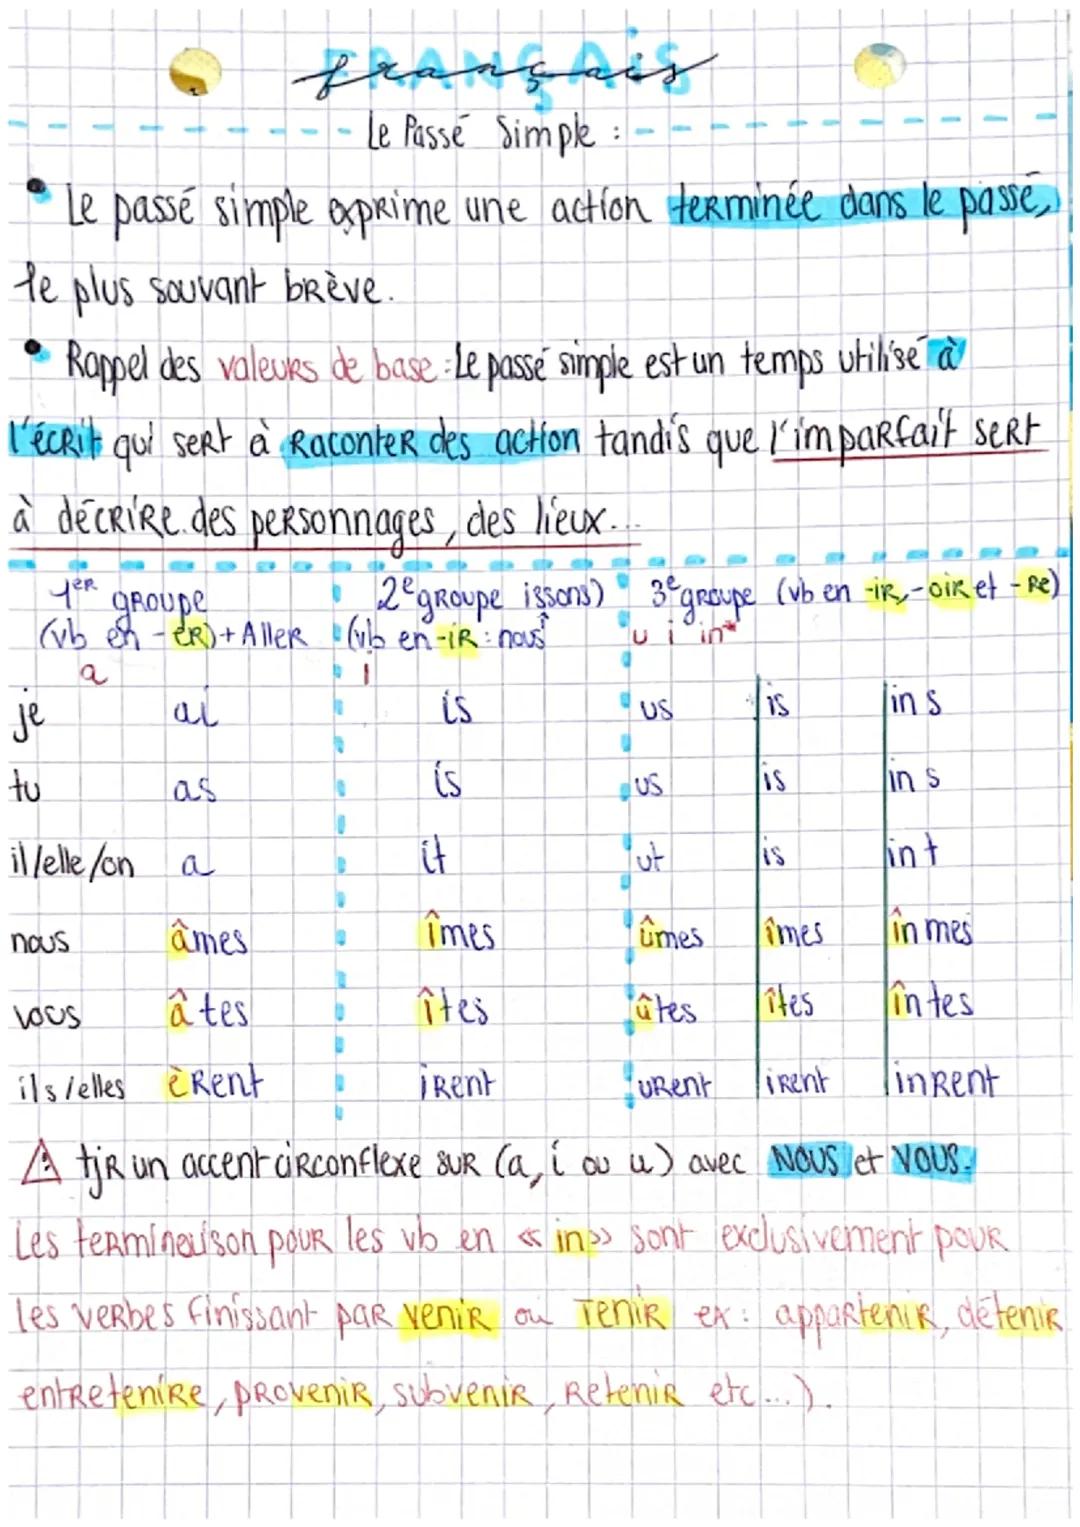 FRANÇAIS
français
Le Passé Simple :
• Le passé simple exprime une action terminée dans le passé,
le plus souvant brève.
• Rappel des valeurs de base : Le passé simple est un temps utilisé à
l'écrit qui sert à raconter des action tandis que l'imparfait sert
à décrire des personnages, des lieux...
1er groupe 2e groupe issons) 3e groupe (vb en -ir, -oir et -re)
(vb en -er) + Aller (vb en -ir : nous u i in*
a i
je ai is us is ins
tu as is us is ins
il/elle/on a it ut is int
nous âmes îmes ûmes îmes înmes
vous âtes îtes ûtes îtes întes
ils/elles èrent irent urent irent inrent
⚠ tjr un accent circonflexe sur (a, i ou u) avec NOUS et VOUS.
Les terminaison pour les vb en « in » sont exclusivement pour
les verbes finissant par venir ou Tenir ex : appartenir, détenir
entretenire, provenir, subvenir, retenir etc...).